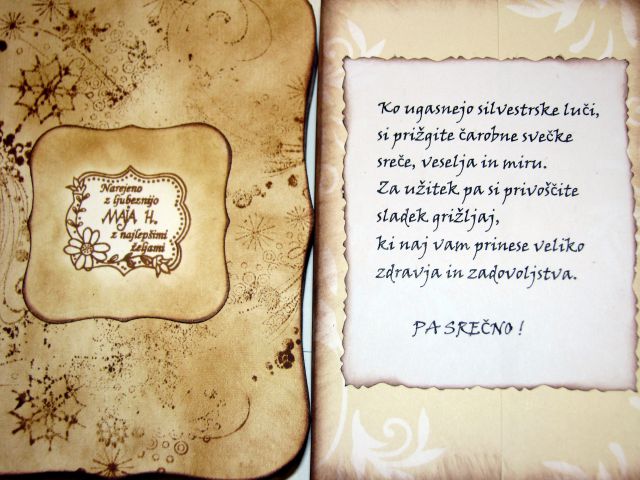 Narejeno
z ljubeznijo
MAJA H.
z najlepšimi
željami
Ko ugasnejo silvestrske luči,
si prižgite čarobne svečke
sreče, veselja in miru.
Za užitek pa si privoščite
sladek grižljaj,
ki naj vam prinese veliko
zdravja in zadovoljstva.
PA SREČNO !